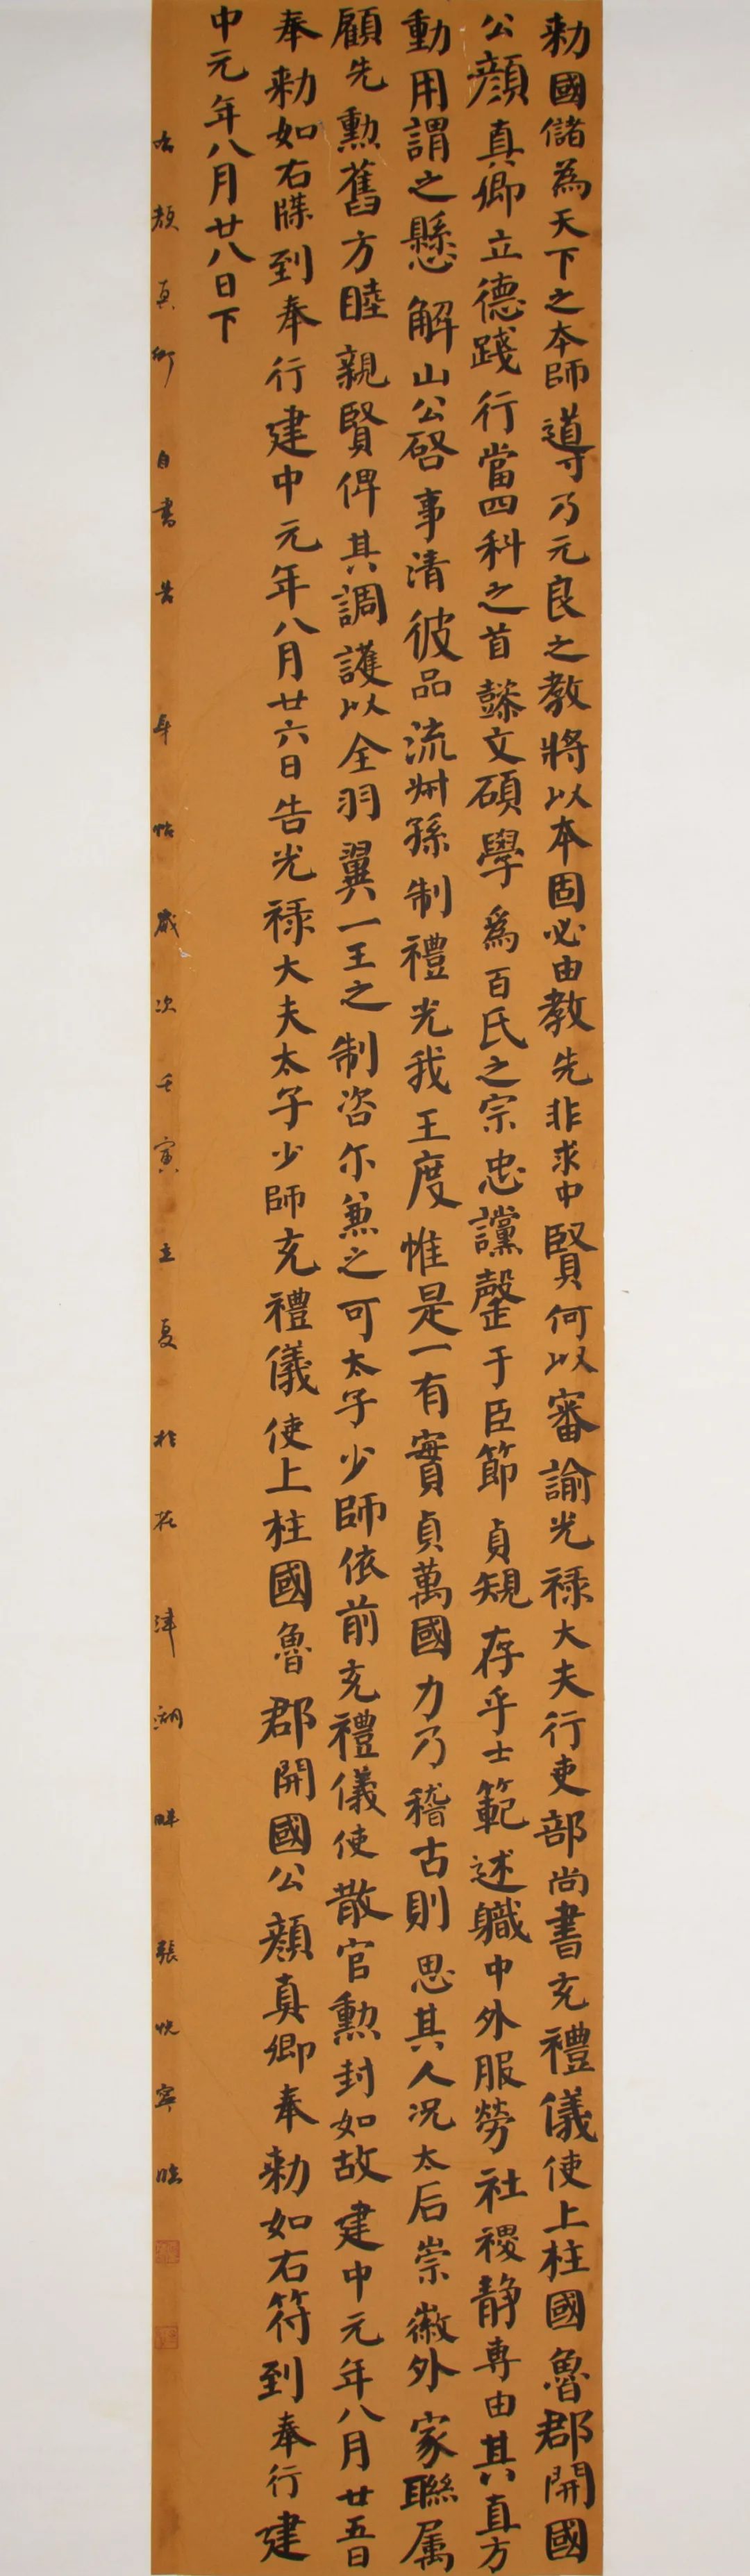 勅國儲為天下之本師導乃元良之教將以本固必由教先非求中賢何以審諭光禄大夫行吏部尚書充禮儀使上柱國魯郡開國
公顔真卿立德踐行當四科之首懿文碩學為百氏之宗忠讜罄于臣節貞規存乎士範述職中外服勞社稷静専由其直方
動用謂之懸解山公啓事清彼品流叔孫制禮光我王度惟是一有實貞萬國力乃稽古則思其人况太后崇徽外家聯属
顧先勲舊方睦親賢俾其調護以全羽翼一王之制咨尓兼之可太子少師依前充禮儀使散官勲封如故建中元年八月廿五日
奉勅如右牒到奉行建中元年八月廿六日告光禄大夫太子少師充禮儀使上柱國魯郡開國公顔真卿奉勅如右符到奉行建
中元年八月廿八日下
右顔真卿自書告身帖歲次壬寅立夏於花津湖畔張悦寧臨